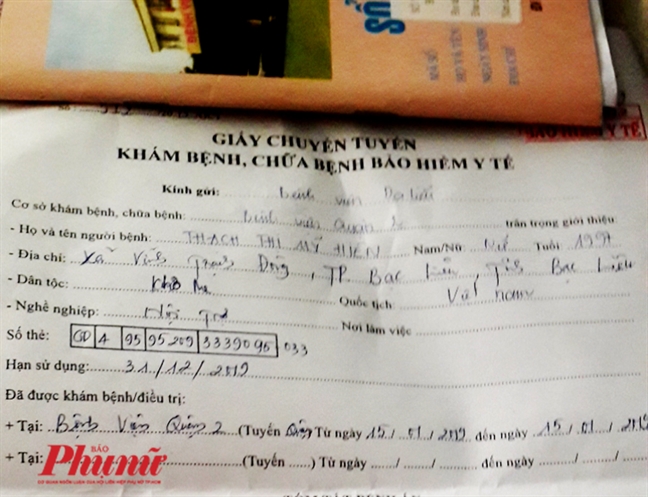 BỆNH VI
SỔ
MÃ SỐ
HỌ VÀ TÊN
NGÀY SINH
ĐỊA CHỈ
BẢO HIỂM Y TẾ
GIẤY CHUYỂN TUYẾN
KHÁM BỆNH, CHỮA BỆNH BẢO HIỂM Y TẾ
Kính gửi: bệnh viện Da liễu
Cơ sở khám bệnh, chữa bệnh: bệnh viện Quận 2 trân trọng giới thiệu:
- Họ và tên người bệnh: THẠCH THỊ MỸ HIỀN Nam/Nữ: Nữ Tuổi 1997
- Địa chỉ: Xã Vĩnh Trạch Đông, TP. Bạc Liêu, Tỉnh Bạc Liêu
- Dân tộc: Khơ Me Quốc tịch Việt Nam
- Nghề nghiệp: Nội trợ Nơi làm việc
Số thẻ: GD 4 95 95209 3339095 033
Hạn sử dụng: 31/12/2019
Đã được khám bệnh/điều trị:
+ Tại: Bệnh Viện Quận 2 (Tuyến Quận) Từ ngày 15/01/2019 đến ngày 15/01/2019
+ Tại: (Tuyến ......) Từ ngày ....../....../...... đến ngày ....../....../......
BÁO
Phụ nữ
CƠ QUAN NGÔN LUẬN CỦA HỘI LIÊN HIỆP PHỤ NỮ TP.HCM